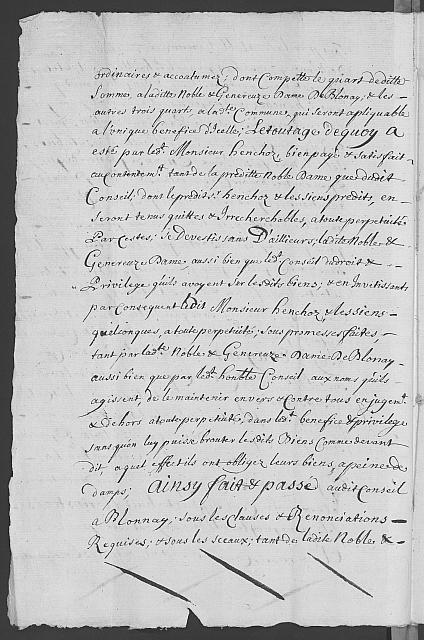 ordinaires & accoutumez; dont Compette le quart de ditte
Somme, a laditte Noble & Genereuze Dame De Blonay, & les
autres trois quarts, a lad.te Commune, qui seront apliquable
a l'unique benefice d'Icelle; Le tout age dequoy A
esté par led.t Monsieur henchoz, bien payé & satisfait
au Contentem.t tant de la préditte Noble Dame que dudit
Conseil; dont le prédit S.r henchoz & les siens prédits, en
seront tenus quittes & Irrecherchables, a toute perpetuité
Par Cestes; se Devestissans D'ailleurs; laditte Noble &
Genereuze Dame, aussi bien que led.t Conseil du droit &
Privilege quils avoyent sur lesdits biens; & en Investissants
par consequent ledit Monsieur henchoz & les siens
quelconques, a toute perpetuité; sous promesses faites,
tant par lad.te Noble & Genereuze Dame De Blonay
aussi bien que par led.t honble Conseil aux noms qu'ils
agissent, de le maintenir envers & Contre tous en jugem.t
& dehors a toute perpetuité, dans led.t benefice & privilege
sans qu'on luy puisse brouter lesdits Biens Comme devant
dit, a quel effet ils ont obligez leurs biens, a peine de
damps; Ainsy fait & passé audit Conseil
a Blonnay; sous les clauses & Renonciations
Requises; & sous les sceaux; tant de ladite Noble &